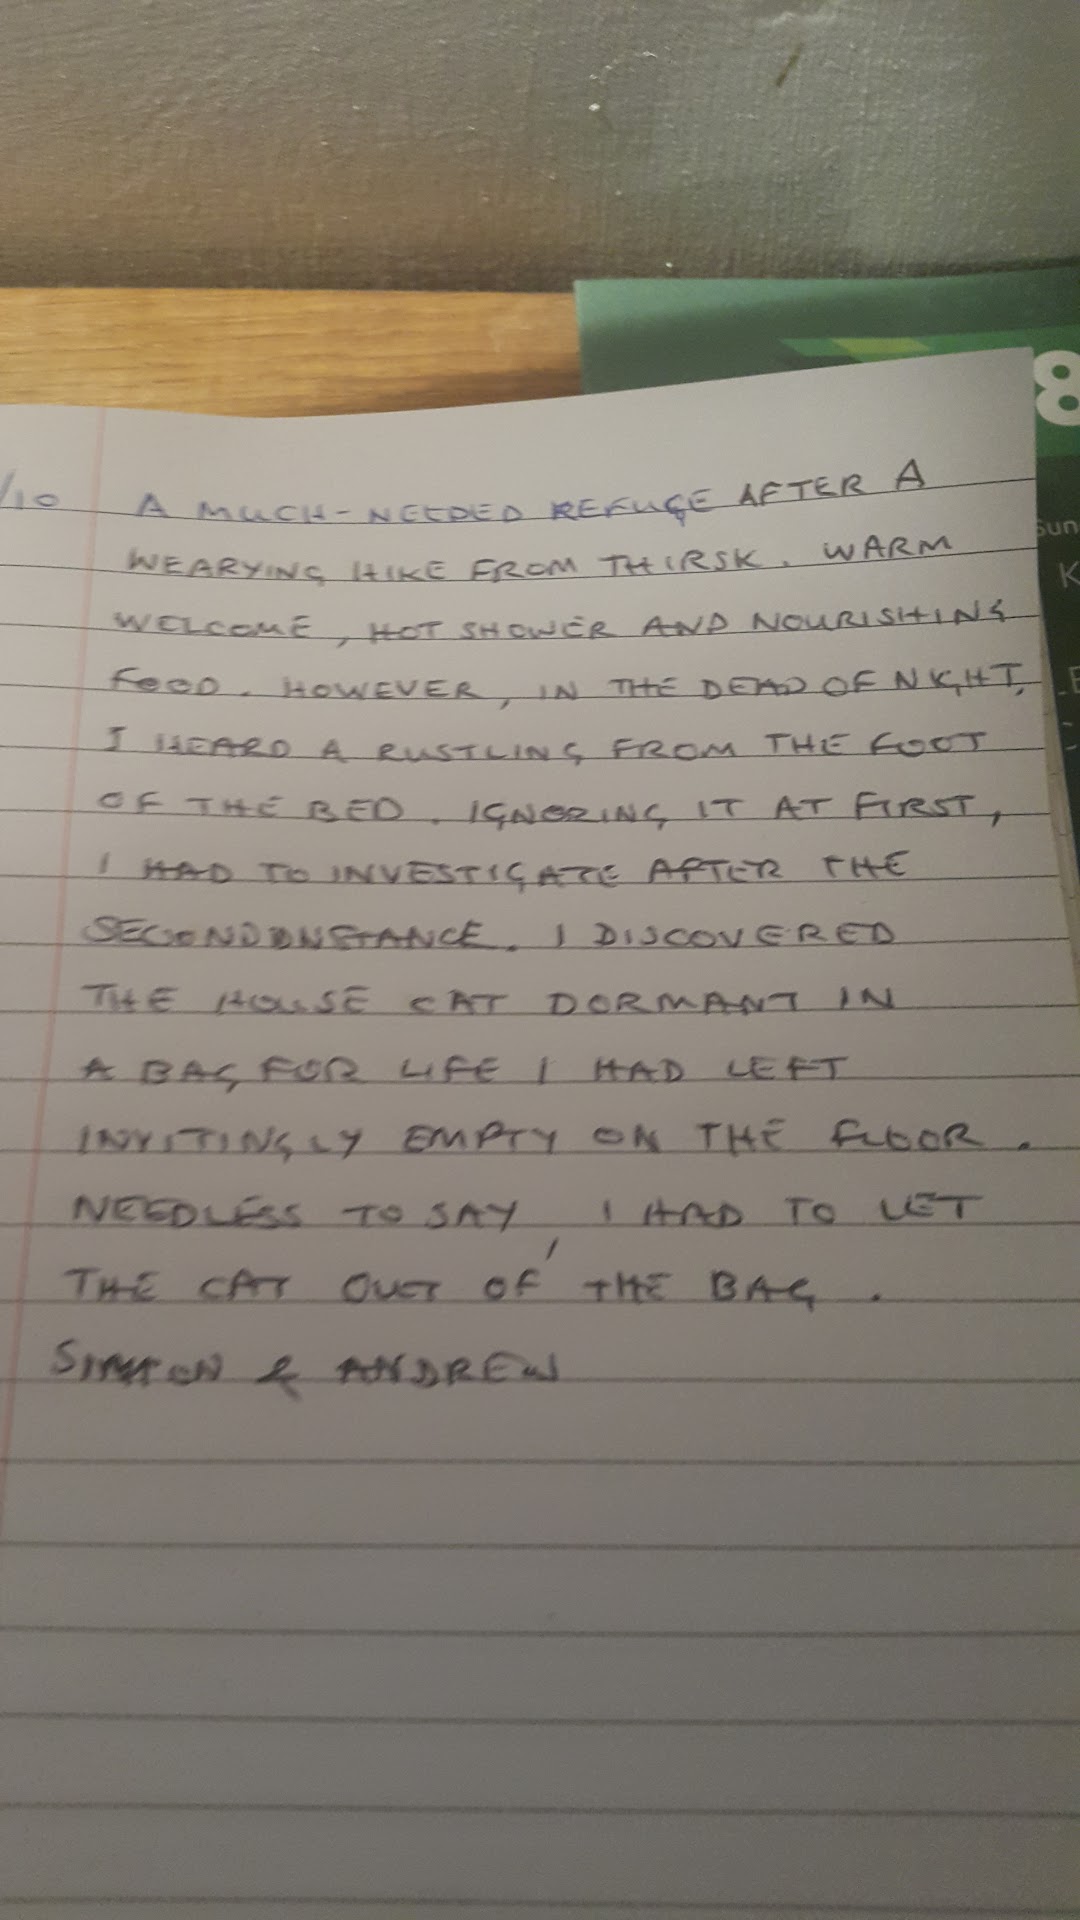 8
/10 A MUCH-NEEDED REFUGE AFTER A
WEARYING HIKE FROM THIRSK. WARM
WELCOME, HOT SHOWER AND NOURISHING
FOOD. HOWEVER, IN THE DEAD OF NIGHT,
I HEARD A RUSTLING FROM THE FOOT
OF THE BED. IGNORING IT AT FIRST,
I HAD TO INVESTIGATE AFTER THE
SECOND INSTANCE. I DISCOVERED
THE HOUSE CAT DORMANT IN
A BAG FOR LIFE I HAD LEFT
INVITINGLY EMPTY ON THE FLOOR.
NEEDLESS TO SAY, I HAD TO LET
THE CAT OUT OF THE BAG.
SIMON & ANDREW
Sun
K